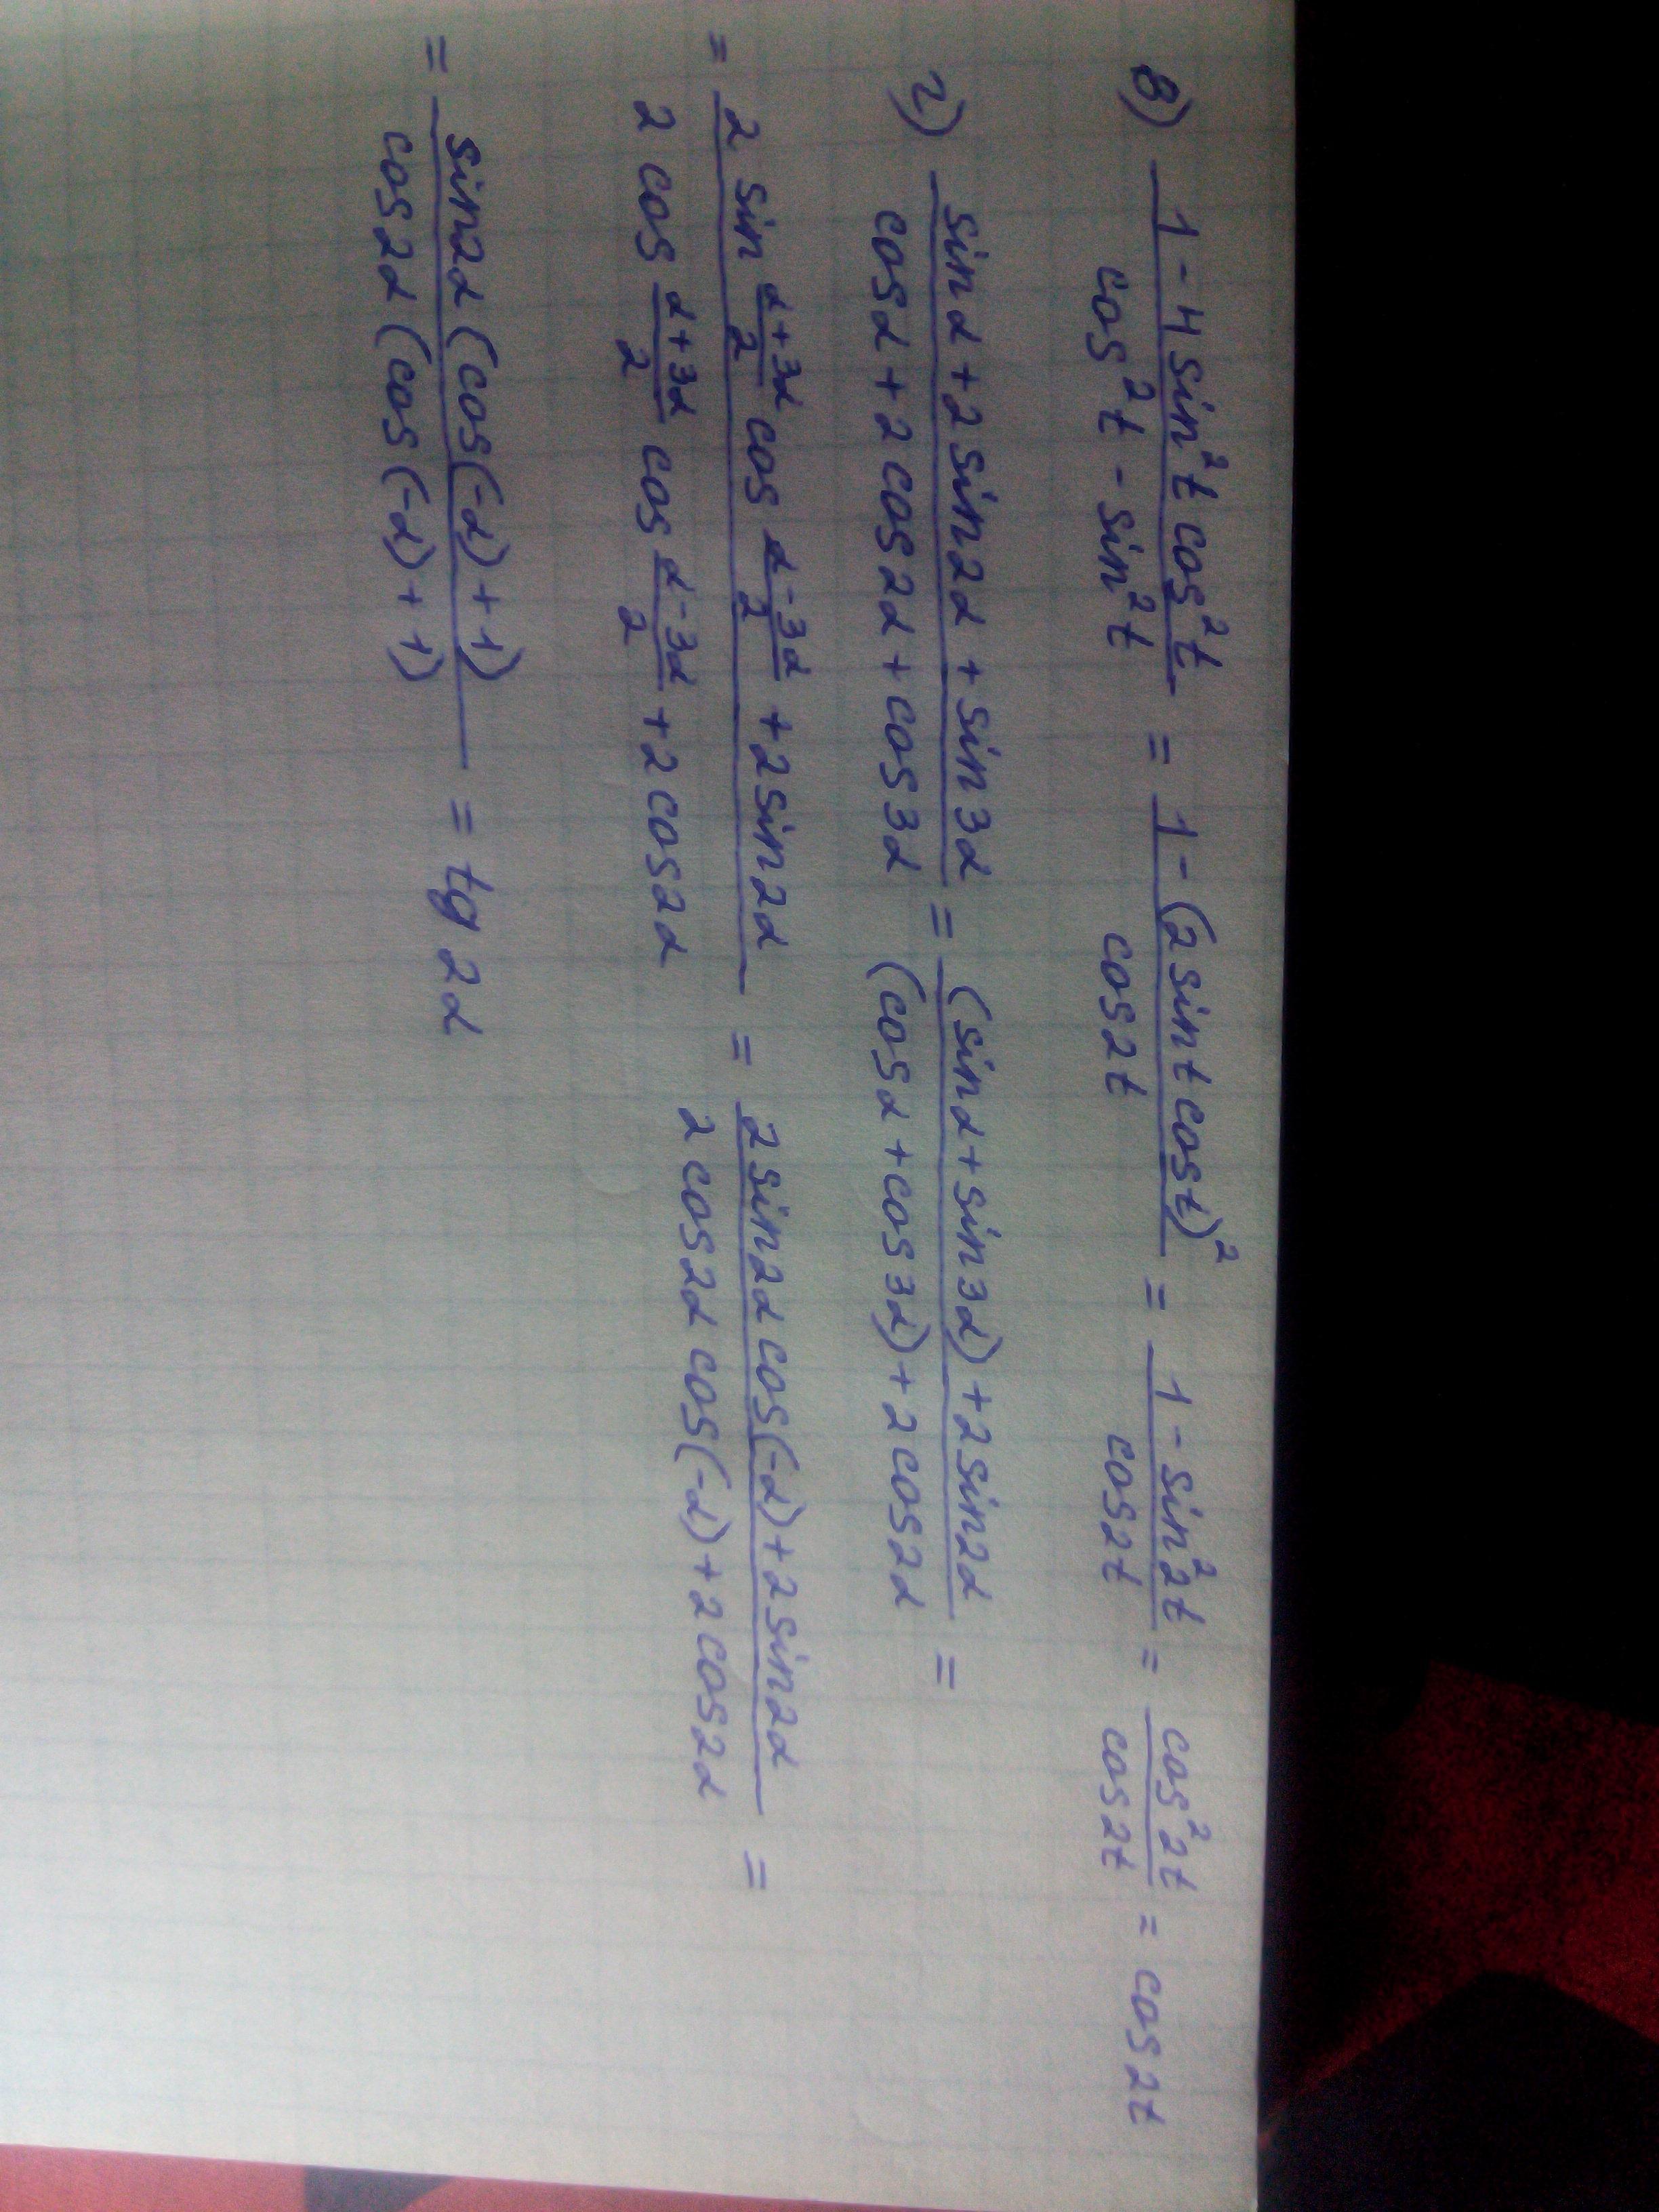 в) (1 - 4 sin²t cos²t)/(cos²t - sin²t) = (1 - (2 sin t cos t)²)/(cos 2t) = (1 - sin²2t)/(cos 2t) = (cos²2t)/(cos 2t) = cos 2t
г) (sin α + 2 sin 2α + sin 3α)/(cos α + 2 cos 2α + cos 3α) = ((sin α + sin 3α) + 2 sin 2α)/((cos α + cos 3α) + 2 cos 2α) =
= (2 sin (α+3α)/2 cos (α-3α)/2 + 2 sin 2α)/(2 cos (α+3α)/2 cos (α-3α)/2 + 2 cos 2α) = (2 sin 2α cos(-α) + 2 sin 2α)/(2 cos 2α cos(-α) + 2 cos 2α) =
= (sin 2α (cos(-α) + 1))/(cos 2α (cos(-α) + 1)) = tg 2α